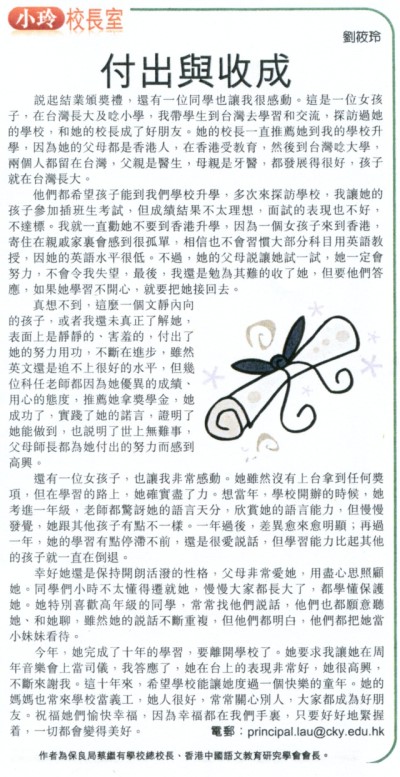 小玲校長室
劉筱玲
付出與收成
說起結業頒獎禮，還有一位同學也讓我很感動。這是一位女孩
子，在台灣長大及唸小學，我帶學生到台灣去學習和交流，探訪過她
的學校，和她的校長成了好朋友。她的校長一直推薦她到我的學校升
學，因為她的父母都是香港人，在香港受教育，然後到台灣唸大學，
兩個人都留在台灣，父親是醫生，母親是牙醫，都發展得很好，孩子
就在台灣長大。
他們都希望孩子能到我們學校升學，多次來探訪學校，我讓她的
孩子參加插班生考試，但成績結果不太理想，面試的表現也不好，
不達標。我就一直勸她不要到香港升學，因為一個女孩子來到香港，
寄住在親戚家裏會感到很孤單，相信也不會習慣大部分科目用英語教
授，因她的英語水平很低。不過，她的父母說讓她試一試，她一定會
努力，不會令我失望，最後，我還是勉為其難的收了她，但要他們答
應，如果她學習不開心，就要把她接回去。
真想不到，這麼一個文靜內向
的孩子，或者我還未真正了解她，
表面上是靜靜的、害羞的，付出了
她的努力用功，不斷在進步，雖然
英文還是追不上很好的水平，但幾
位科任老師都因為她優異的成績、
用心的態度，推薦她拿獎學金，她
成功了，實踐了她的諾言，證明了
她能做到，也說明了世上無難事，
父母師長都為她付出的努力而感到
高興。
還有一位女孩子，也讓我非常感動。她雖然沒有上台拿到任何獎
項，但在學習的路上，她確實盡了力。想當年，學校開辦的時候，她
考進一年級，老師都驚訝她的語言天分，欣賞她的語言能力，但慢慢
發覺，她跟其他孩子有點不一樣。一年過後，差異愈來愈明顯；再過
一年，她的學習有點停滯不前，還是很愛說話，但學習能力比起其他
的孩子就一直在倒退。
幸好她還是保持開朗活潑的性格，父母非常愛她，用盡心思照顧
她。同學們小時不太懂得遷就她，慢慢大家都長大了，都學懂保護
她。她特別喜歡高年級的同學，常常找他們說話，他們也都願意聽
她、和她聊，雖然她的說話不斷重複，但他們都明白，他們都把她當
小妹妹看待。
今年，她完成了十年的學習，要離開學校了。她要求我讓她在周
年音樂會上當司儀，我答應了，她在台上的表現非常好，她很高興，
不斷來謝我。這十年來，希望學校能讓她度過一個快樂的童年。她的
媽媽也常來學校當義工，她人很好，常常關心別人，大家都成為好朋
友。祝福她們愉快幸福，因為幸福都在我們手裏，只要好好地緊握
着，一切都會變得美好。 電郵：principal.lau@cky.edu.hk
作者為保良局蔡繼有學校總校長、香港中國語文教育研究學會會長。